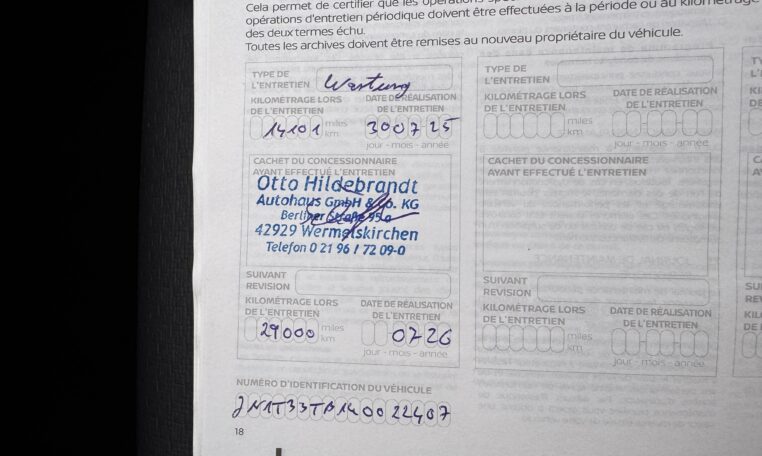 Cela permet de certifier que les
opérations d'entretien périodique doivent être effectuées à la période ou au kilométrage
des deux termes échu.
Toutes les archives doivent être remises au nouveau propriétaire du véhicule.
TYPE DE
L'ENTRETIEN
Wartung
KILOMÉTRAGE LORS
DE L'ENTRETIEN
DATE DE RÉALISATION
DE L'ENTRETIEN
14101
miles
km
300725
jour - mois - année
CACHET DU CONCESSIONNAIRE
AYANT EFFECTUÉ L'ENTRETIEN
Otto Hildebrandt
Autohaus GmbH & Co. KG
Berliner Straße 95a
42929 Wermelskirchen
Telefon 0 21 96 / 72 09-0
SUIVANT
REVISION
KILOMÉTRAGE LORS
DE L'ENTRETIEN
DATE DE RÉALISATION
DE L'ENTRETIEN
29000
miles
km
0726
jour - mois - année
TYPE DE
L'ENTRETIEN
KILOMÉTRAGE LORS
DE L'ENTRETIEN
DATE DE RÉALISATION
DE L'ENTRETIEN
miles
km
jour - mois - année
CACHET DU CONCESSIONNAIRE
AYANT EFFECTUÉ L'ENTRETIEN
SUIVANT
REVISION
KILOMÉTRAGE LORS
DE L'ENTRETIEN
DATE DE RÉALISATION
DE L'ENTRETIEN
miles
km
jour - mois - année
NUMÉRO D'IDENTIFICATION DU VÉHICULE
18